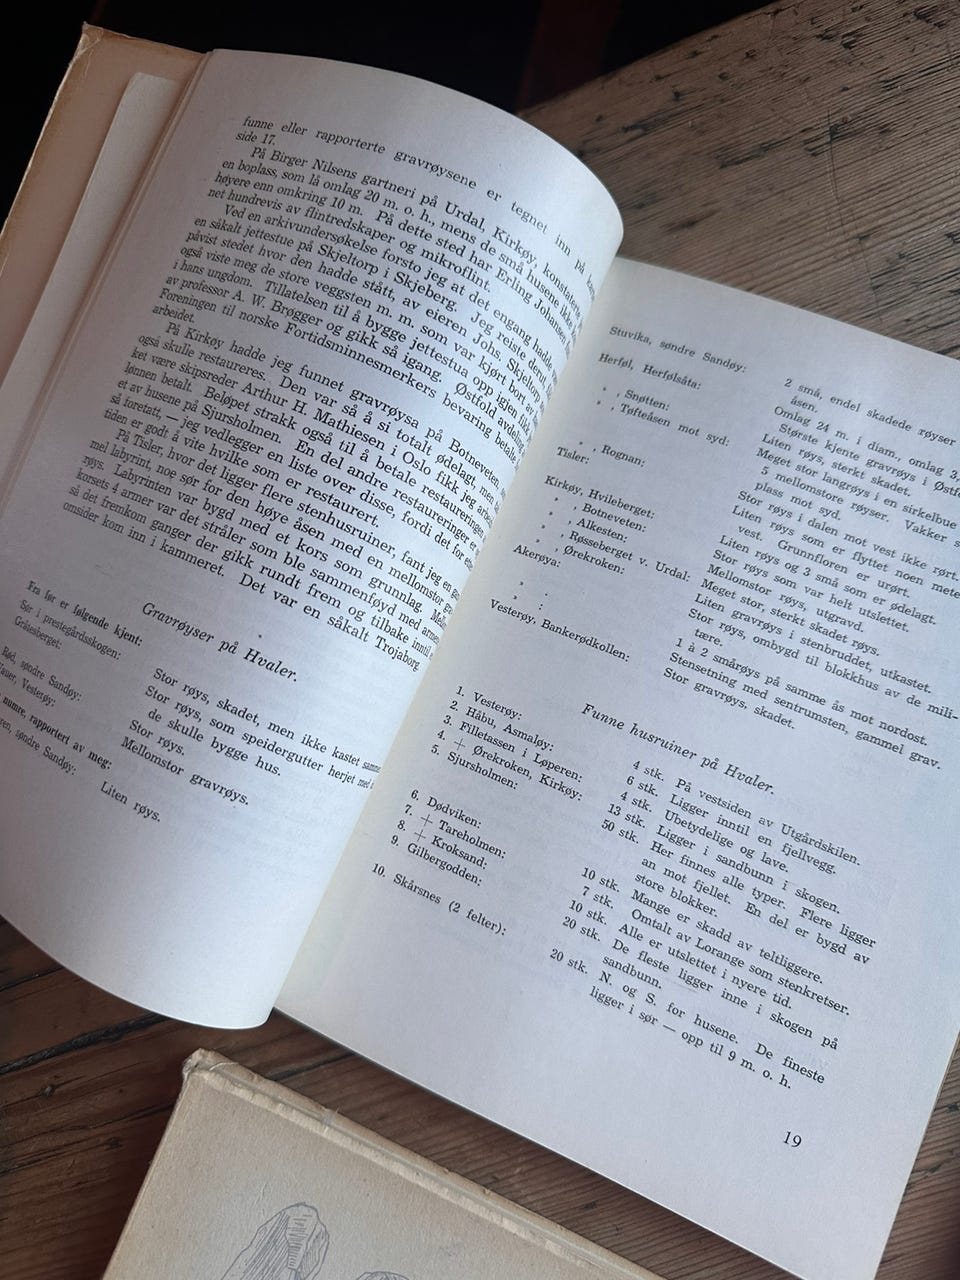 funne eller rapporterte gravrøysene er tegnet inn på
side 17.
På Birger Nilsens gartneri på Urdal, Kirkøy, konstaterte
en boplass, som lå omlag 20 m. o. h., mens de små husene ikke
høyere enn omkring 10 m. På dette sted har Erling Johansen
net hundrevis av flintredskaper og mikroflint.
Ved en arkivundersøkelse forsto jeg at det engang hadde
en såkalt jettestue på Skjeltorp i Skjeberg. Jeg reiste derut,
påvist stedet hvor den hadde stått, av eieren Johs. Skjeltorp,
også viste meg de store veggsten m. m. som var kjørt bort, av
i hans ungdom. Tillatelsen til å bygge jettestua opp igjen fikk
av professor A. W. Brøgger og gikk så igang. Østfold avdeling
Foreningen til norske Fortidsminnesmerkers bevaring betalte
arbeidet.
På Kirkøy hadde jeg funnet gravrøysa på Botneveten, som
også skulle restaureres. Den var så si totalt ødelagt, men
ket være skipsreder Arthur H. Mathiesen i Oslo fikk jeg
lønnen betalt. Beløpet strakk også til å betale restaureringen
et av husene på Sjursholmen. En del andre restaureringer er
så foretatt, — jeg vedlegger en liste over disse, fordi det for
tiden er godt å vite hvilke som er restaurert.
På Tisler, hvor det ligger flere stenhusruiner, fant jeg en
mel labyrint, noe sør for den høye åsen med en mellomstor
røys. Labyrinten var bygd med et kors som grunnlag. Mellom
korsets 4 armer var det stråler som ble sammenføyd med armene
så det fremkom ganger der gikk rundt frem og tilbake inntil
omsider kom inn i kammeret. Det var en såkalt Trojaborg.
Gravrøyser på Hvaler.
Fra før er følgende kjent:
Sør i prestegårdsskogen: Stor røys, skadet, men ikke kastet
Gråløsberget: Stor røys, som speidergutter herjet med
de skulle bygge hus.
Rød, søndre Sandøy: Stor røys.
Vesterøy: Mellomstor gravrøys.
numre, rapportert av meg:
søndre Sandøy: Liten røys.
Stuvika, søndre Sandøy: 2 små, endel skadede røyser
åsen.
Herføl, Herfølsåta: Omlag 24 m. i diam., omlag 3,
Største kjente gravrøys i Østf
„ , Snøtten: Liten røys, sterkt skadet.
„ , Tøfteåsen mot syd: Meget stor langrøys i en sirkelbue
5 mellomstore røyser. Vakker
plass mot syd.
„ , Rognan: Stor røys i dalen mot vest ikke rørt.
Tisler: Liten røys som er flyttet noen mete
vest. Grunnfloren er urørt.
Kirkøy, Hvileberget: Liten røys og 3 små som er ødelagt.
„ , Botneveten: Stor røys som var helt utslettet.
„ , Alkesten: Mellomstor røys, utgravd.
„ , Røsseberget v. Urdal: Meget stor, sterkt skadet røys.
„ , Ørekroken: Liten gravrøys i stenbruddet, utkastet.
Akerøya: Stor røys, ombygd til blokkhus av de mili-
tære.
„ : 1 à 2 smårøys på samme ås mot nordost.
„ : Stensetning med sentrumsten, gammel grav.
Vesterøy, Bankerødkollen: Stor gravrøys, skadet.
Funne husruiner på Hvaler.
1. Vesterøy: 4 stk. På vestsiden av Utgårdskilen.
2. Håbu, Asmaløy: 6 stk. Ligger inntil en fjellvegg.
3. Filletassen i Løperen: 4 stk. Ubetydelige og lave.
4. + Ørekroken, Kirkøy: 13 stk. Ligger i sandbunn i skogen.
5. Sjursholmen: 50 stk. Her finnes alle typer. Flere ligger
an mot fjellet. En del er bygd av
store blokker.
6. Dødviken: 10 stk. Mange er skadd av teltliggere.
7. + Tareholmen: 7 stk. Omtalt av Lorange som stenkretser.
8. + Kroksand: 10 stk. Alle er utslettet i nyere tid.
9. Gilbergodden: 20 stk. De fleste ligger inne i skogen på
sandbunn.
10. Skårsnes (2 felter): 20 stk. N. og S. for husene. De fineste
ligger i sør — opp til 9 m. o. h.
19